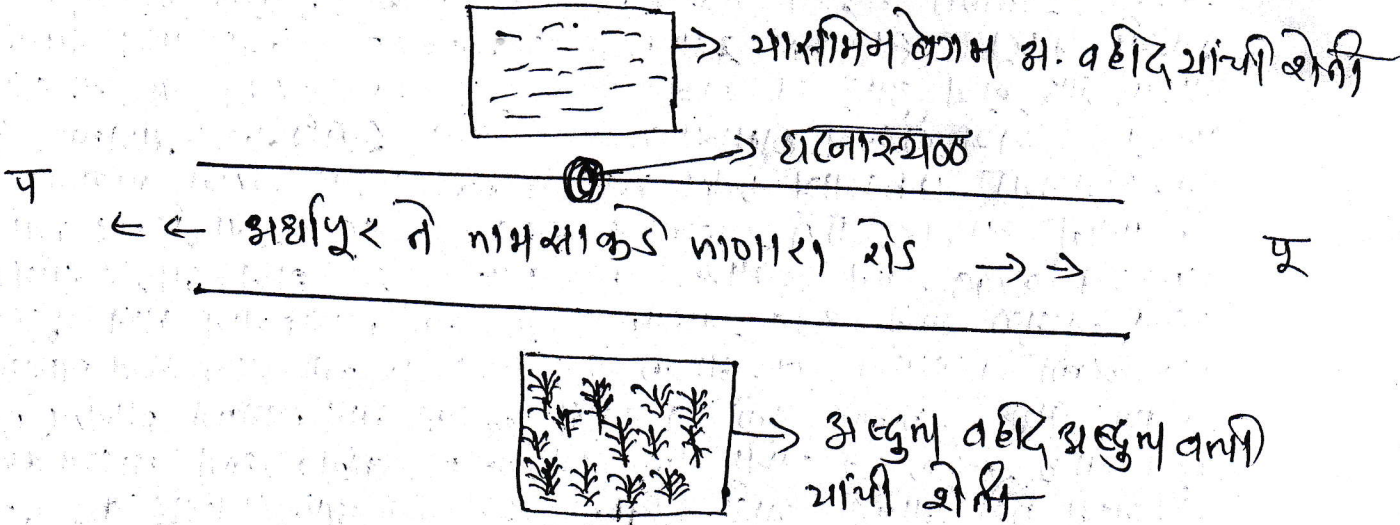 यासमिन बेगम अ. वहीद यांची शेती
घटनास्थळ
प
अर्धापूर ते तामसाकडे जाणारा रोड
पू
अब्दुल वहीद अब्दुल वली
यांची शेती